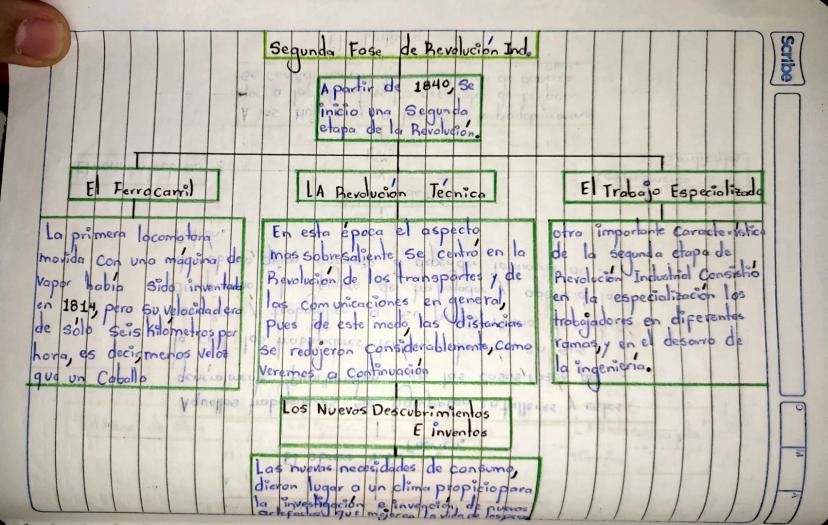 Segunda Fase de Revolución Ind.
Scribe
A partir de 1840, Se
inicio una Segunda
etapa de la Revolución.
El Ferrocarril
La primera locomotora
movida Con una máquina de
vapor había sido inventada
en 1814, pero su velocidad era
de sólo seis kilómetros por
hora, es decir, menos veloz
que un Caballo
LA Revolución Técnica
En esta época el aspecto
mas sobresaliente, se centró en la
Revolución de los transportes y de
las comunicaciones en general,
Pues de este modo, las distancias
se redujeron considerablemente, Como
veremos a Continuación
El Trabajo Especializado
otra importante Característica
de la segunda etapa de
Revolución Industrial Consistió
en la especialización los
trabajadores en diferentes
ramas, y en el desarro de
la ingeniería.
Los Nuevos Descubrimientos
E inventos
Las nuevas necesidades de consumo,
dieron lugar a un clima propicio para
la investigación e invención, de nuevos
artefactos que mejoren la vida de las